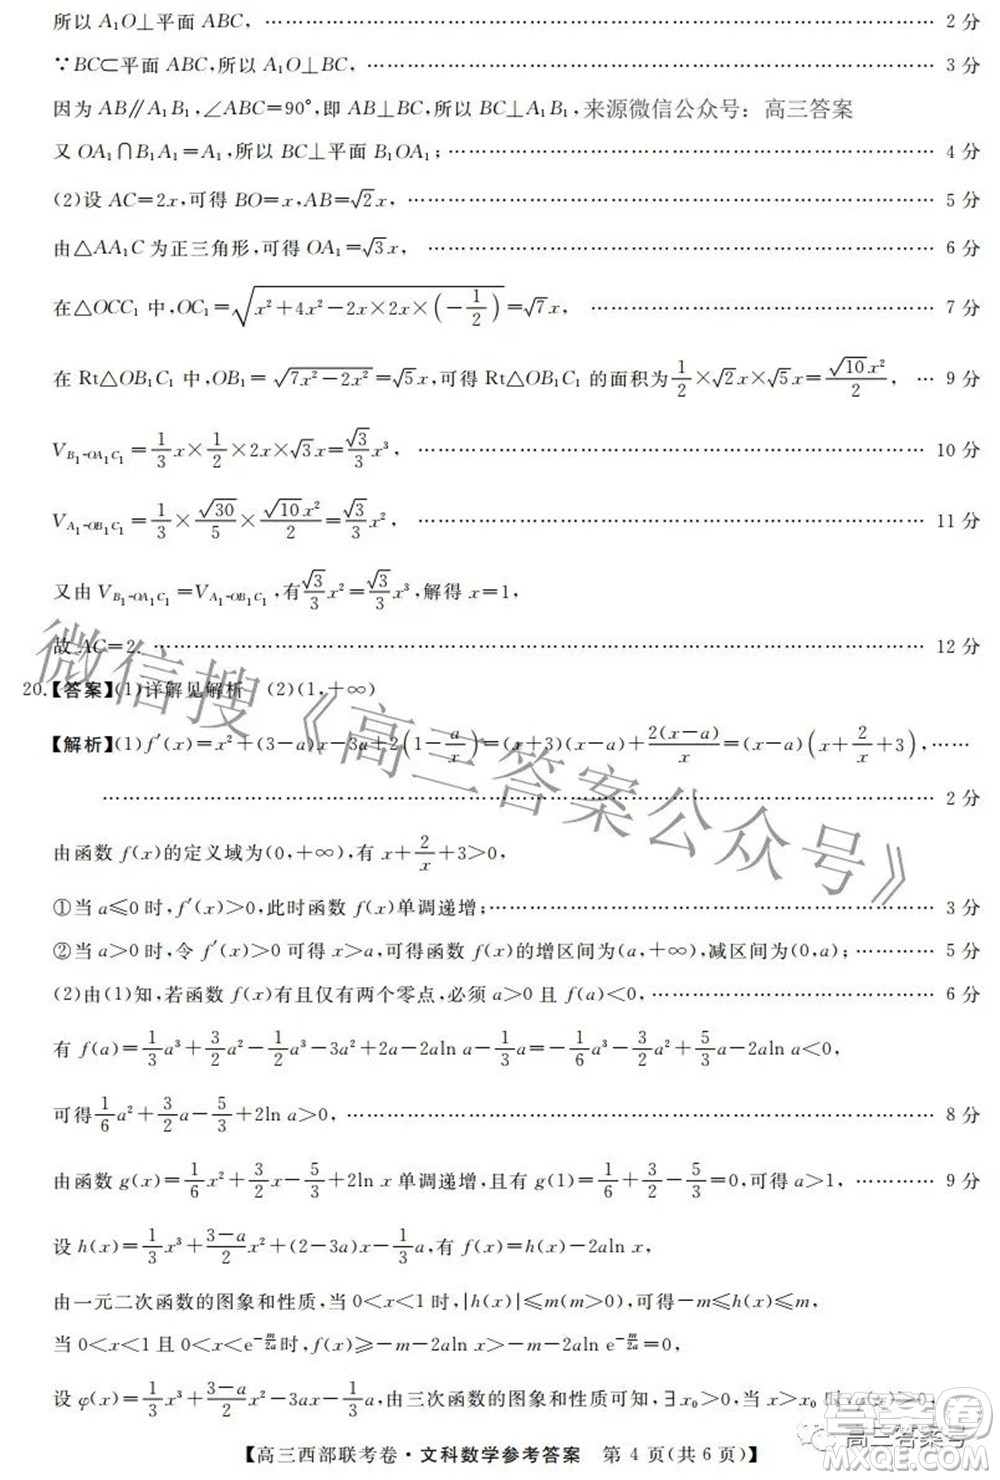 所以 A₁O⊥平面 ABC, …… 2 分
∵BC⊂平面 ABC,所以 A₁O⊥BC, …… 3 分
因为 AB∥A₁B₁,∠ABC=90°,即 AB⊥BC,所以 BC⊥A₁B₁, 来源微信公众号：高三答案
又 OA₁∩B₁A₁=A₁,所以 BC⊥平面 B₁OA₁; …… 4 分
(2)设 AC=2x,可得 BO=x,AB=√2x, …… 5 分
由△AA₁C 为正三角形,可得 OA₁=√3x, …… 6 分
在△OCC₁ 中,OC₁=√(x²+4x²-2x×2x×(-1/2))=√7x, …… 7 分
在 Rt△OB₁C₁ 中,OB₁=√(7x²-2x²)=√5x,可得 Rt△OB₁C₁ 的面积为 1/2×√2x×√5x=√10x²/2, … 9 分
V_{B₁-OA₁C₁}=1/3 x×1/2×2x×√3x=√3/3 x³, …… 10 分
V_{A₁-OB₁C₁}=1/3×√30/5×√10x²/2=√3/3 x², …… 11 分
又由 V_{B₁-OA₁C₁}=V_{A₁-OB₁C₁},有 √3/3 x²=√3/3 x³,解得 x=1,
故 AC=2. …… 12 分
20.【答案】(1)详解见解析 (2)(1,+∞)
【解析】(1)f′(x)=x²+(3-a)x-3a+2(1-a/x)=(x+3)(x-a)+2(x-a)/x=(x-a)(x+2/x+3),……
…… 2 分
由函数 f(x)的定义域为(0,+∞),有 x+2/x+3>0,
①当 a≤0 时,f′(x)>0,此时函数 f(x)单调递增;…… 3 分
②当 a>0 时,令 f′(x)>0 可得 x>a,可得函数 f(x)的增区间为(a,+∞),减区间为(0,a); …… 5 分
(2)由(1)知,若函数 f(x)有且仅有两个零点,必须 a>0 且 f(a)<0, …… 6 分
有 f(a)=1/3 a³+3/2 a²-1/2 a³-3a²+2a-2aln a-1/3 a=-1/6 a³-3/2 a²+5/3 a-2aln a<0,
可得 1/6 a²+3/2 a-5/3+2ln a>0, …… 8 分
由函数 g(x)=1/6 x²+3/2 x-5/3+2ln x 单调递增,且有 g(1)=1/6+3/2-5/3=0,可得 a>1, …… 9 分
设 h(x)=1/3 x³+(3-a)/2 x²+(2-3a)x-1/3 a,有 f(x)=h(x)-2aln x,
由一元二次函数的图象和性质,当 0<x<1 时,|h(x)|≤m(m>0),可得-m≤h(x)≤m,
当 0<x<1 且 0<x<e^{-m/2a}时,f(x)≥-m-2aln x>-m-2aln e^{-m/2a}=0,
设 φ(x)=1/3 x³+(3-a)/2 x²-3ax-1/3 a,由三次函数的图象和性质可知,∃x₀>0,当 x>x₀ 时,φ(x)>0,
【高三西部联考卷·文科数学参考答案 第 4 页(共 6 页)】
微信搜《高三答案公众号》
高三答案号